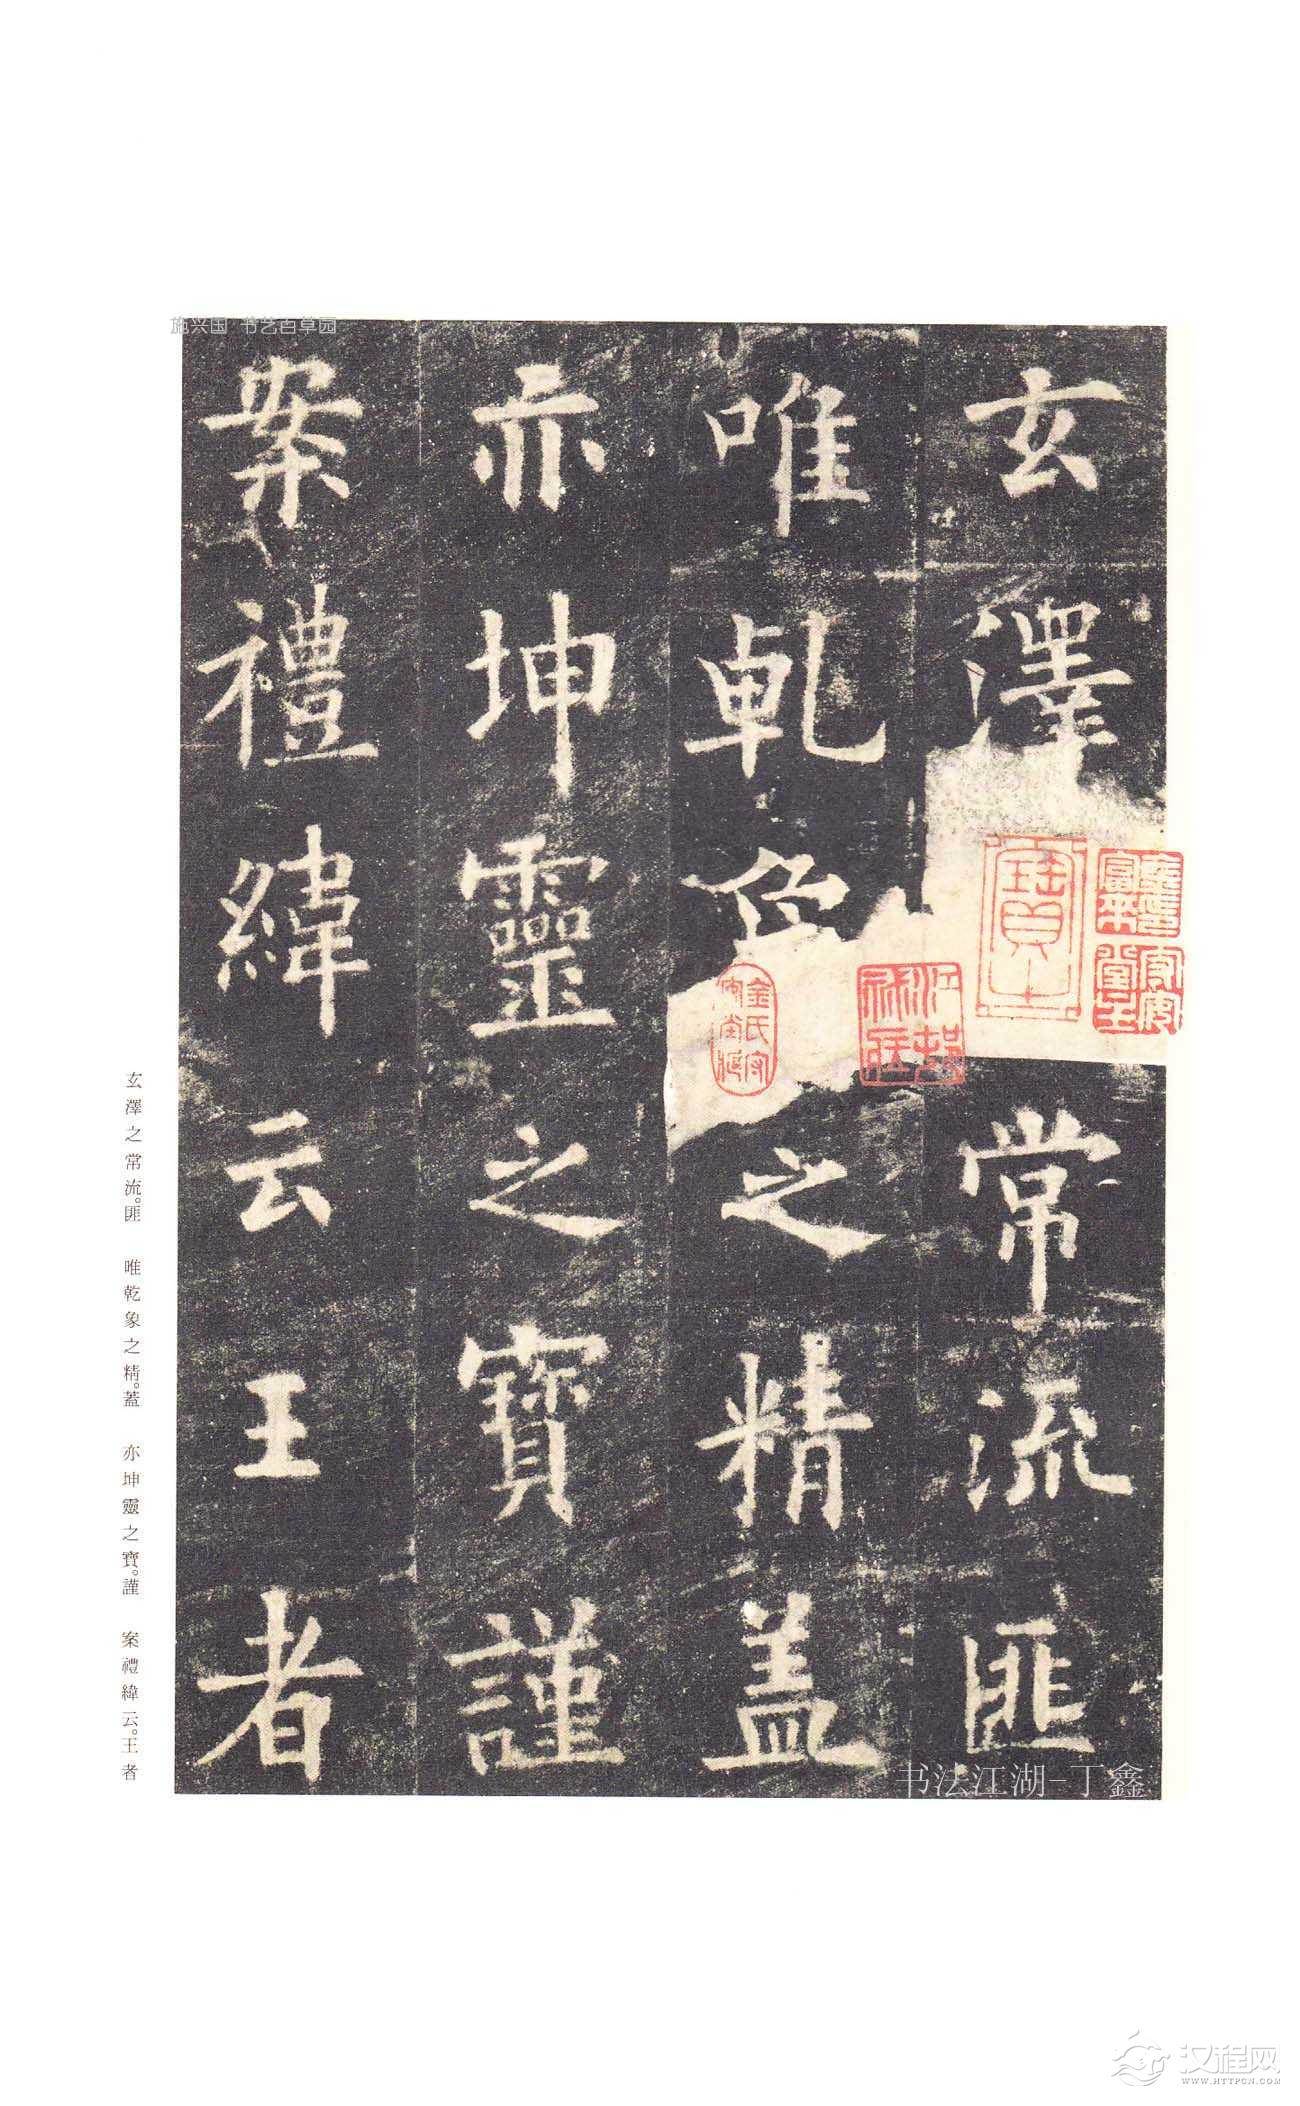 施兴国 书艺百草园
玄澤常流匪
唯乹象之精盖
亦坤靈之寶謹
案禮緯云王者
玄澤之常流。匪 唯乾象之精。蓋 亦坤靈之寶。謹 案禮緯云。王者
书法江湖-丁鑫
汉程网
WWW.HTTPCN.COM